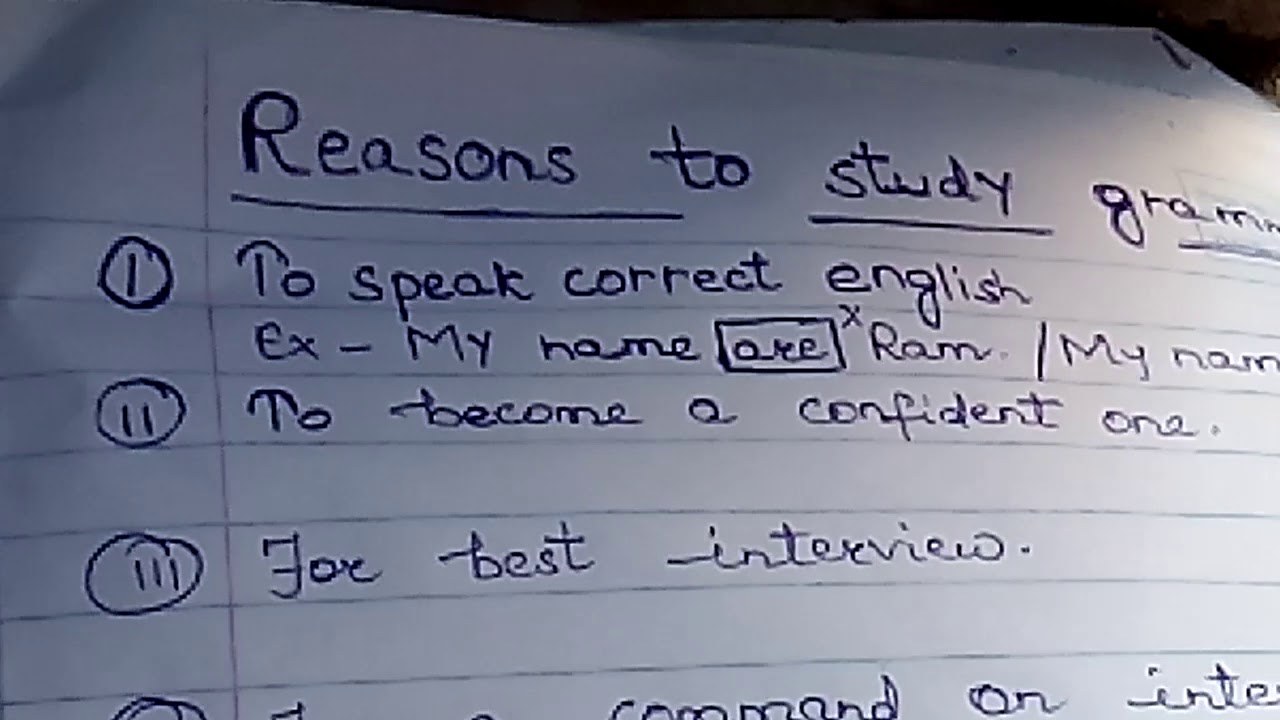 Reasons to study gram
I To speak correct english
Ex - My name are x Ram. / My nam
II To become a confident one.
III For best interview.
command on inte